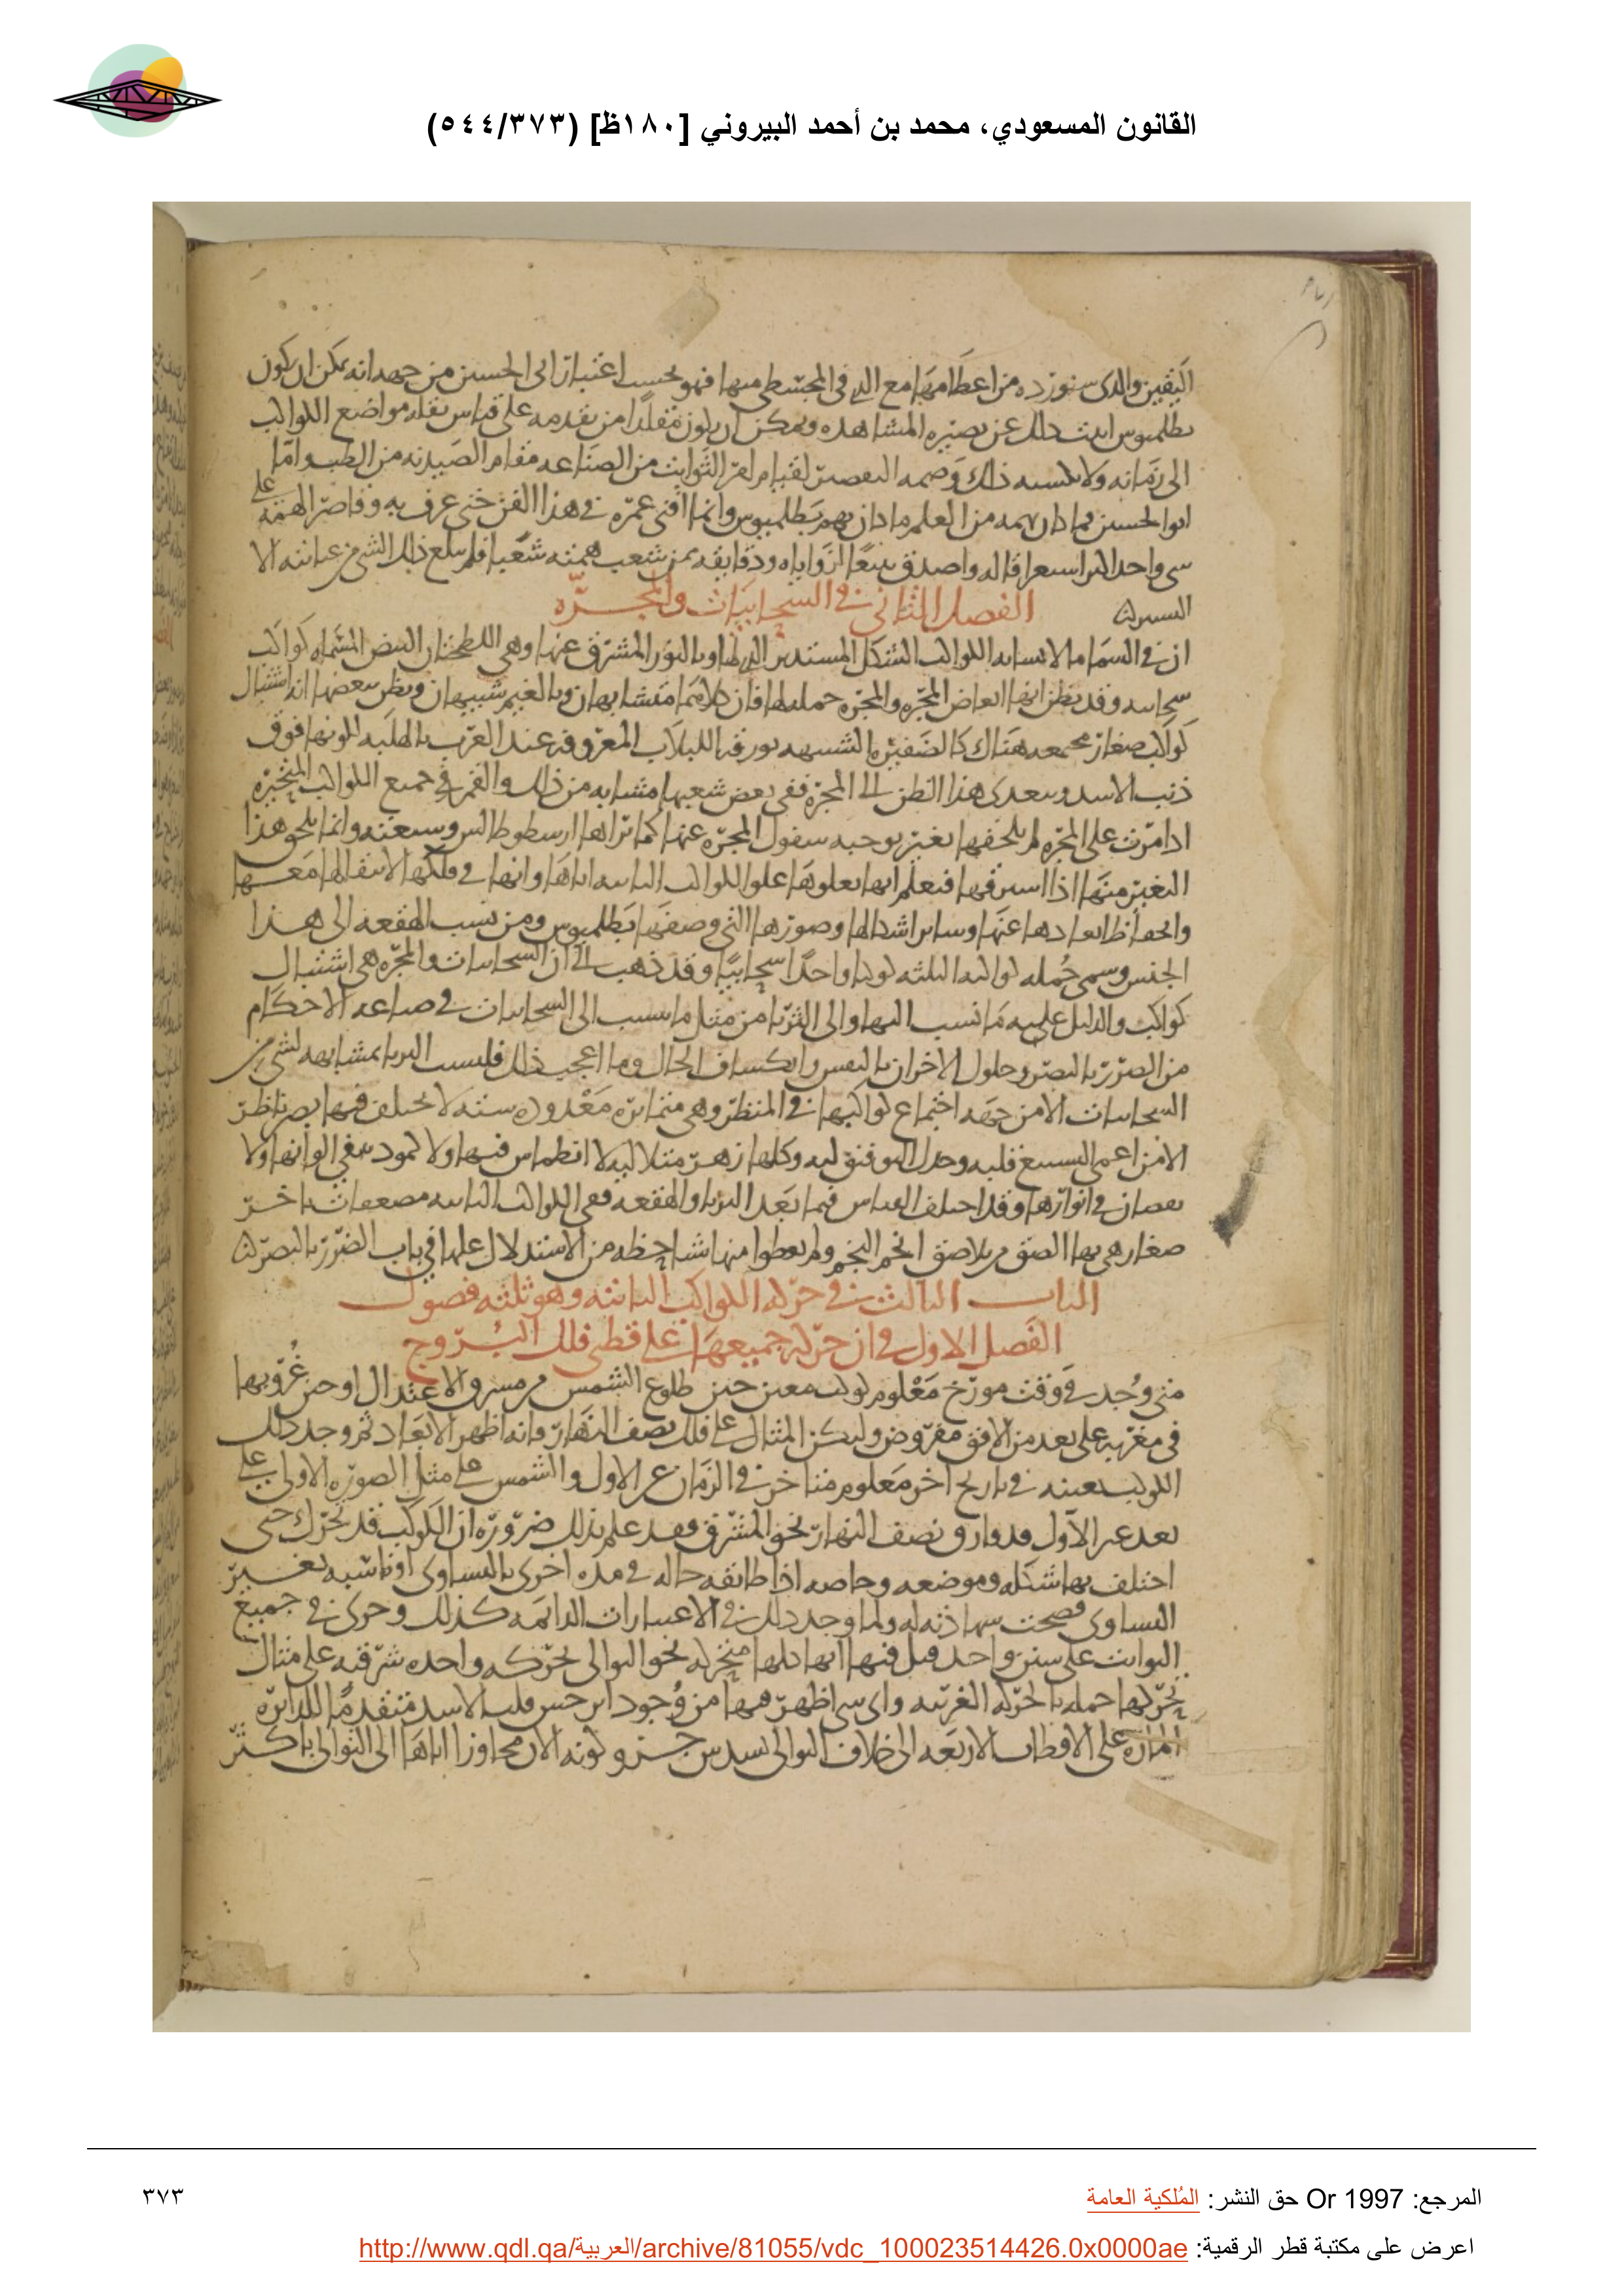 القانون المسعودي، محمد بن أحمد البيروني [١٨٠ظ] (٥٤٤/٣٧٣)
اليقين والذى سنورده من اعظامها مع التى فى المجسطى منها فهو بحسب اعتبار ابى الحسين من جهه انه يمكن ان يكون
بطلميوس اثبت ذلك عن بصيره المشاهده ويمكن ان يكون مقلدا من تقدمه على قياس نقله مواضع الكواكب
الى زمانه ولا يكسبه ذلك وصمه التقصير لقيام امر الثوابت من الصناعه مقام الصيدنه من الطب واما
ابو الحسين فما كان يهمه من العلم ما كان يهم بطلميوس وانما افنى عمره فى هذا الفن حتى عرف به وقاصر الهمه على
شى واحد اكثر استقرا له واصدق تتبعا لزواياه ودقايقه ممن شعب همته شعبا فلم يبلغ ذلك الشى من عنايته الا
اليسير
الفصل الثانى فى السحابيات والمجره
ان فى السما ما لا يشابه الكواكب الشكل المستدير التى لها وبالنور المشرق عنها وهى اللطخات البيض المسماه كواكب
سحابيه وقد يظن انها ابعاض المجره والمجره جملتها فان كلاهما متشابهان وبالغيم شبيهان ويظن ببعضها انه اشتباك
كواكب صغار مجتمعه هناك كالضفيره الشبيهه بورقه اللبلاب المعروفه عند العرب بالهلبه لكونها فوق
ذنب الاسد ويتعدى هذا الظن الى المجره ففى بعض شعبها مشابه من ذلك والقمر فى جميع الكواكب المتحيره
اذا مرت على المجره لم يلحقها تغير يوجبه سفول المجره عنها كما يراها ارسطوطالس وشيعته وانما يلحق هذا
التغير منها اذا استتر فيها فيعلم انها تعلوها علو الكواكب الثابته اياها وانها فى فلكها لانتقالها معها
وانحفاظ ابعادها عنها وساير اشكالها وصورها التى وصفها بطلميوس ومن نسب الهقعه الى هذا
الجنس وسمى جمله كواكبه الثلثه كوكبا واحدا سحابيا وقد ذهب الى ان السحابيات والمجره هى اشتباك
كواكب والدليل عليه ما نسب اليها والى الثريا من مثل ما ينسب الى السحابيات فى صناعه الاحكام
من الضرر بالبصر وحلول الاحزان بالنفس وانكساف الحال وما اعجب ذلك فليست الثريا بمشابهه لشى من
السحابيات الا من جهه اجتماع كواكبها فى المنظر وهى متمايزه معدوده سته لا يختلف فيها بصر ناظر
الا من اعمى قلبه وكلها زهر متلالية لا انطماس فيها ولا كمود فى الوانها ولا
نقصان فى انوارها وقد اختلف القياس فيما بعد الثريا والهقعه ففى الكواكب الثابته مضعفات باخر
صغار هى بها الصق من تلاصق انجم النجم ولم يعطوا منها شيا حظه من الاستدلال عليها فى باب الضرر بالبصر
الباب الثالث فى حركه الكواكب الثابته وهو ثلثه فصول
الفصل الاول فى ان حركه جميعها على قطبى فلك البروج
متى وجد فى وقت مورخ معلوم كوكب معين حين طلوع الشمس من مشرق الاعتدال او حين غروبها
فى مغربه على بعد من الافق مفروض وليكن المثال على فلك نصف النهار فانه اظهر الابعاد ثم وجد ذلك
الكوكب بعينه فى تاريخ اخر معلوم متاخر فى الزمان عن الاول والشمس على مثل الصوره الاولى على
بعد غير الاول فارق نصف النهار نحو المشرق فقد علم بذلك ضروره ان الكوكب قد تحرك حتى
اختلف بها شكله وموضعه وخاصه اذا طابقه حاله فى مده اخرى بالتساوى او ناسبه بغير
التساوى فصحت شهادته له ولما وجد ذلك فى الاعتبارات الدايمه كذلك وجرى فى جميع
الثوابت على سنن واحد قيل فيها انها كلها متحركه نحو التوالى بحركه واحده شرقيه على مثال
تحركها جمله بالحركه الغربيه واى شى اظهر فيها من وجود ابرخس قلب الاسد متقدما للدايره
الماره على الاقطاب الاربعه الى خلاف التوالى بسدس جزو وكونه الان مجاوزا اياها الى التوالى باكثر
المرجع: Or 1997 حق النشر: المُلكية العامة
٣٧٣
اعرض على مكتبة قطر الرقمية: http://www.qdl.qa/العربية/archive/81055/vdc_100023514426.0x0000ae